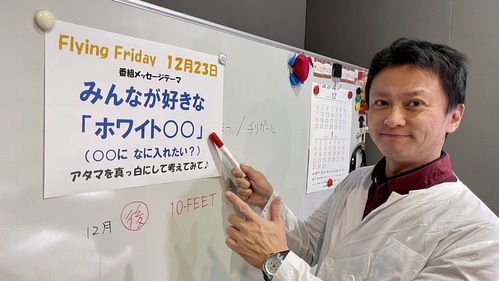 Flying Friday 12月23日
番組メッセージテーマ
みんなが好きな
「ホワイト〇〇」
(〇〇に なに入れたい?)
アタマを真っ白にして考えてみて♪
ー／チリガール
12月 後 10-FEET
12